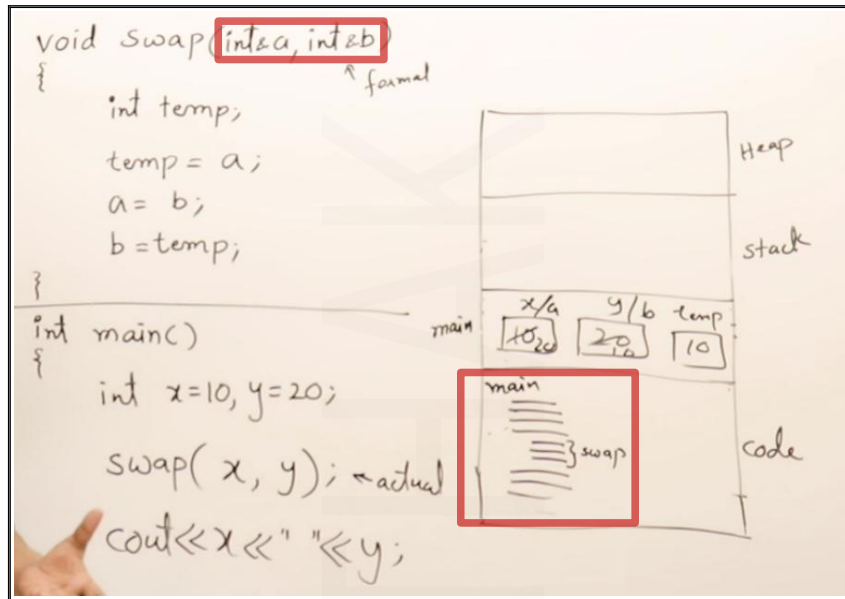 void swap(int&a, int&b)
{
↑ formal
int temp;
temp = a;
a = b;
b = temp;
}
int main()
{
int x=10, y=20;
swap( x, y); ←actual
cout<<x<<" "<<y;
Heap
stack
x/a y/b temp
main 10 20 20 10 10
main
} swap
code